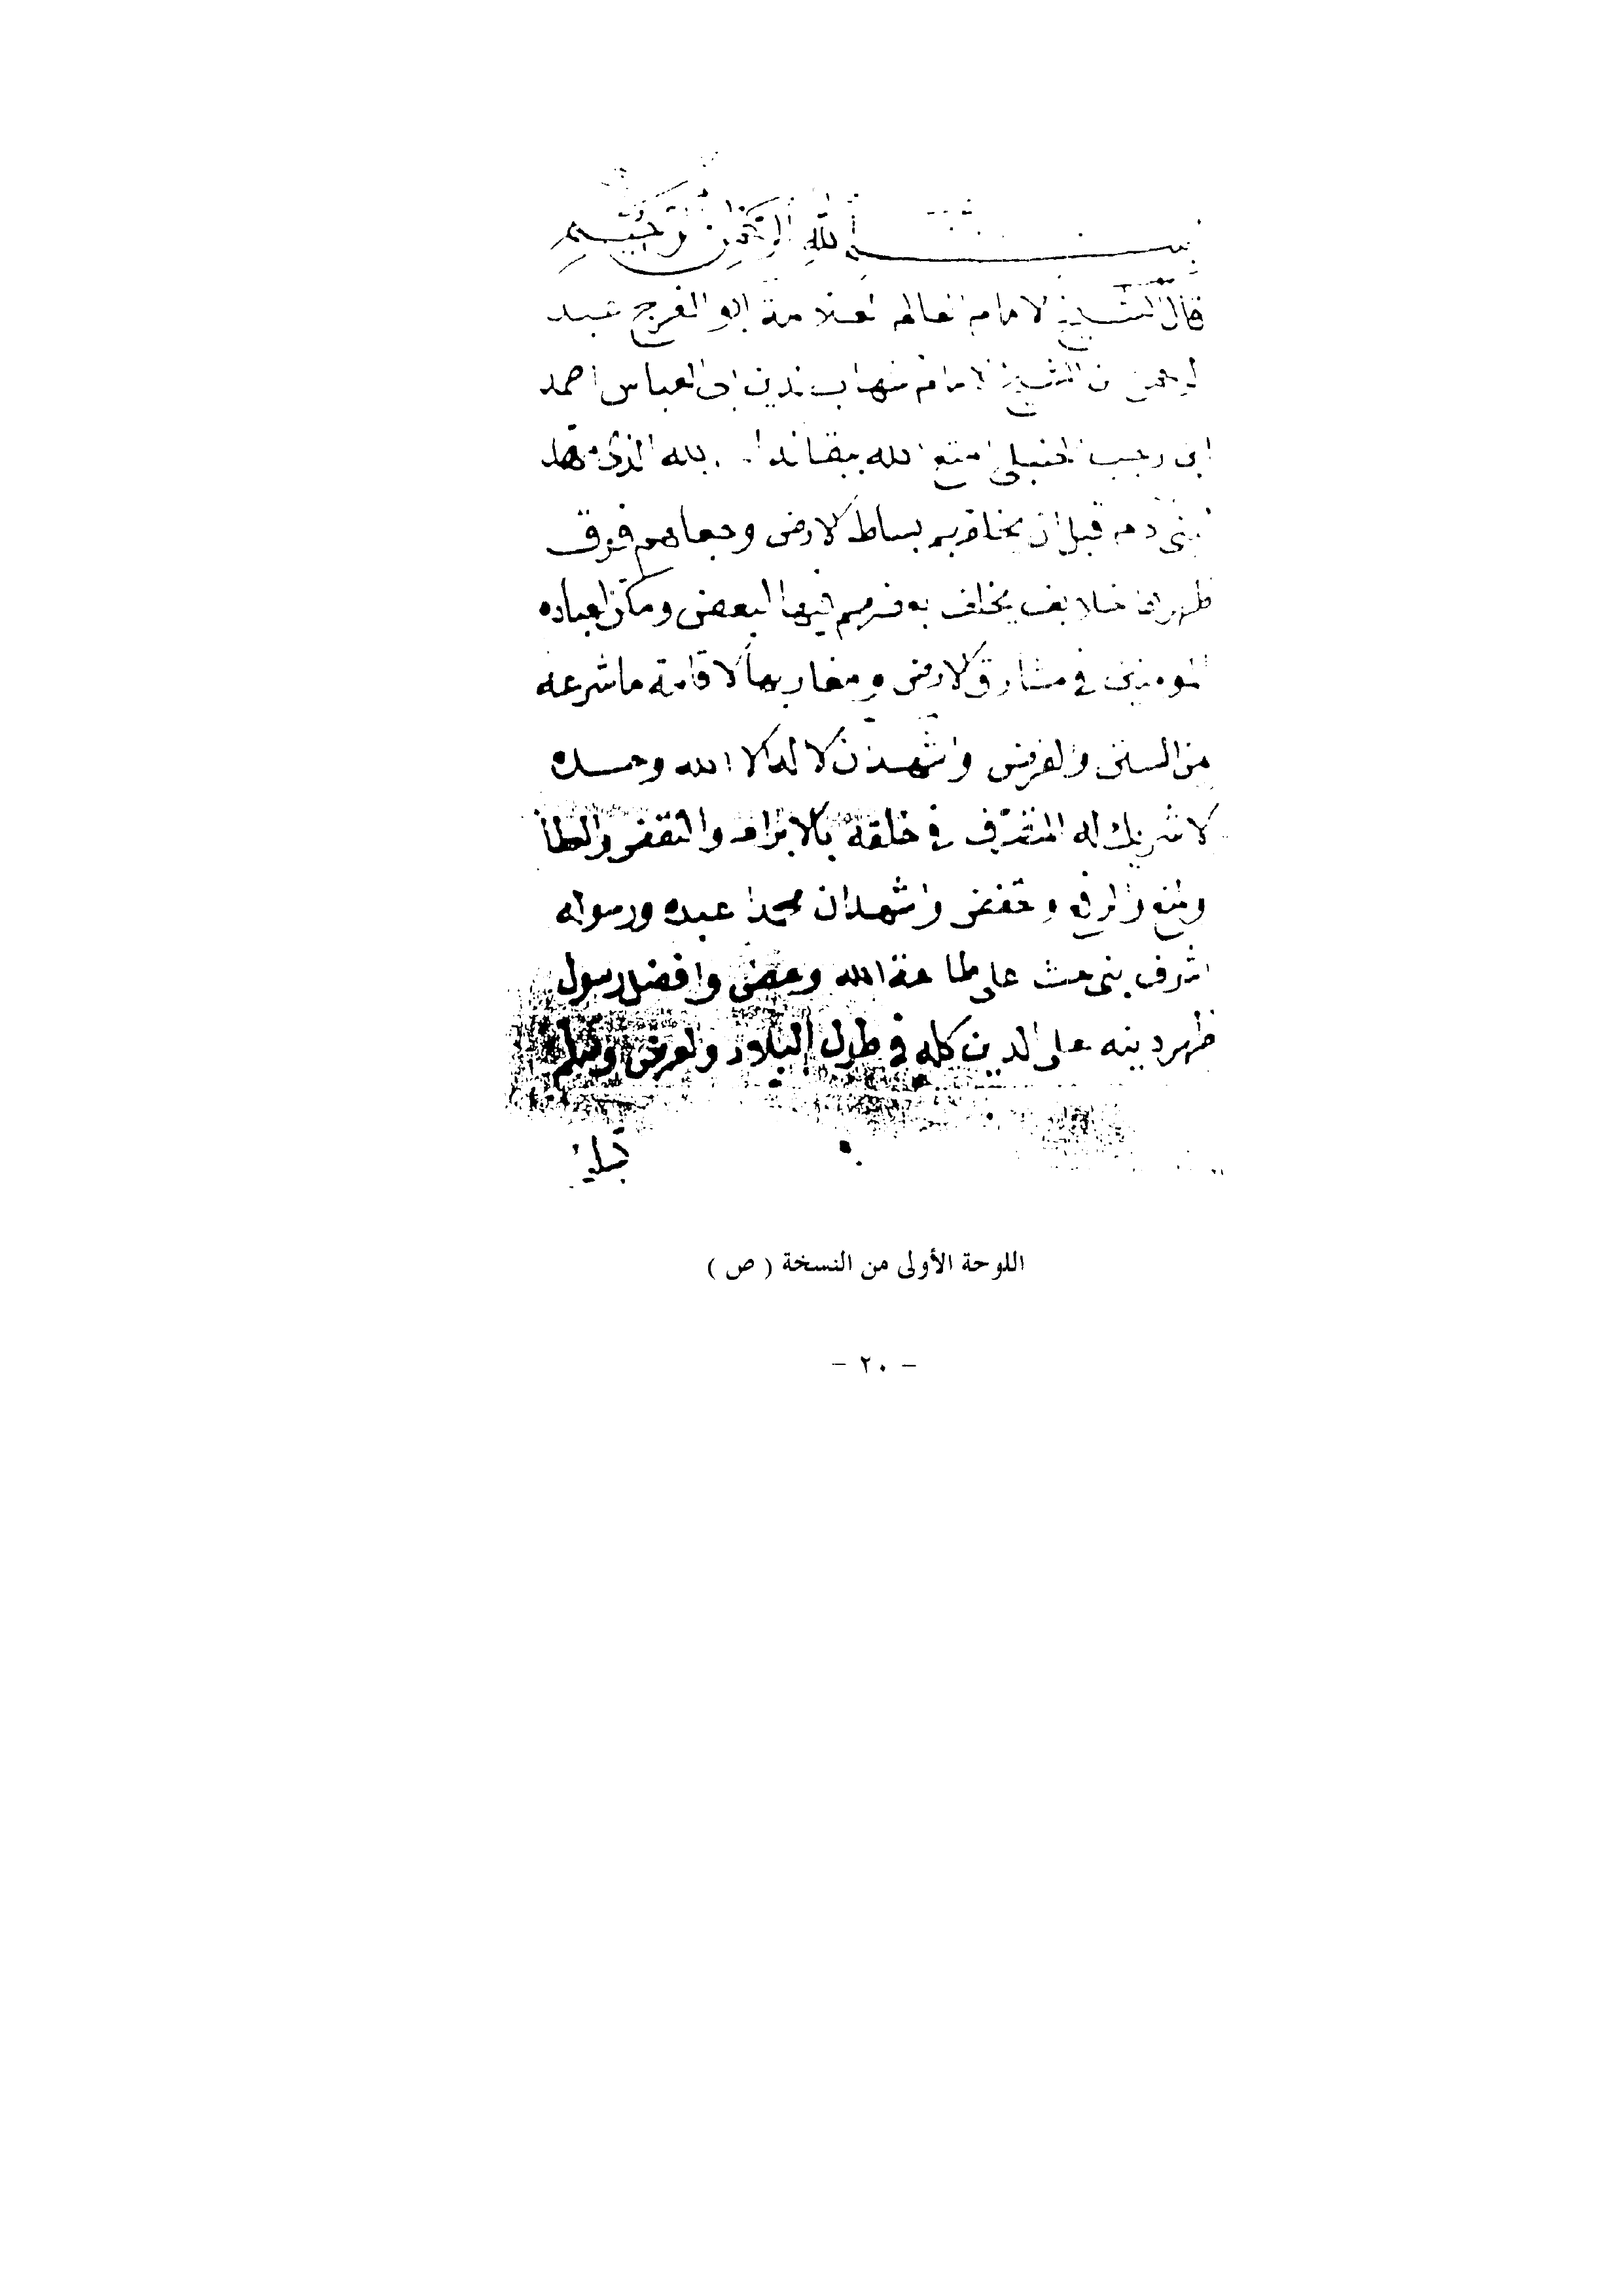 بسم الله الرحمن الرحيم
قال الشيخ الامام العالم العلامة ابو الفرج عبد
الرحمن بن الشيخ الامام شهاب الدين ابى العباس احمد
ابن رجب الحنبلى امتع الله ببقائه لله الذى مهد
لبنى ادمه قبل ان يخلقهم بساط الارض وجعلهم فوق
ظهرها خلايف يخلف بعضهم فيها البعض ومكن لعباده
المومنين فى مشارق الارض ومغاربها لاقامة ما شرعه
من السنن والفرض واشهد ان لا اله الا الله وحده
لا شريك له المتصرف فى خلقه بالابرام والنقض والعطا
والمنع والرفع والخفض واشهد ان محمدا عبده ورسوله
اشرف بنى حث على طاعة الله وحض وافضل رسول
ظهر دينه على الدين كله فى طول البلاد والعرض وسلم
تسليما
اللوحة الأولى من النسخة ( ص )
- ٢٠ -